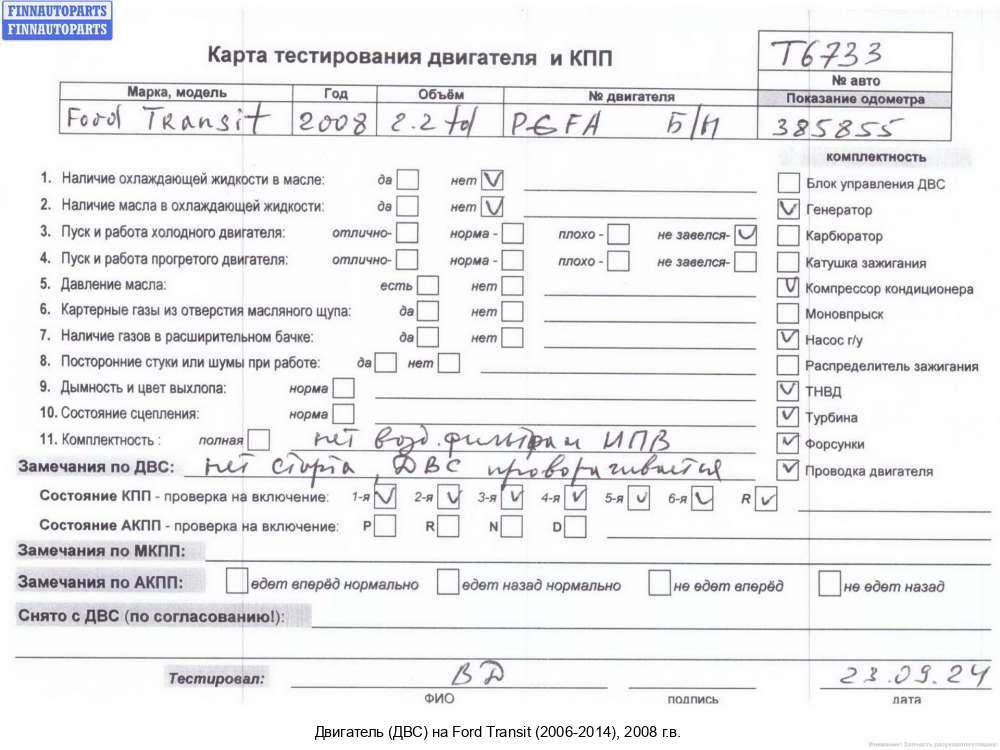 FINNAUTOPARTS
FINNAUTOPARTS
Карта тестирования двигателя и КПП
T6733
№ авто
Марка, модель Год Объём № двигателя Показание одометра
Ford Transit 2008 2.2 td PGFA Б/Н 385855
комплектность
1. Наличие охлаждающей жидкости в масле: да нет V
Блок управления ДВС
2. Наличие масла в охлаждающей жидкости: да нет V
V Генератор
3. Пуск и работа холодного двигателя: отлично- норма - плохо - не завелся- V
Карбюратор
4. Пуск и работа прогретого двигателя: отлично- норма - плохо - не завелся-
Катушка зажигания
5. Давление масла: есть нет
V Компрессор кондиционера
6. Картерные газы из отверстия масляного щупа: да нет
Моновпрыск
7. Наличие газов в расширительном бачке: да нет
V Насос г/у
8. Посторонние стуки или шумы при работе: да нет
Распределитель зажигания
9. Дымность и цвет выхлопа: норма
V ТНВД
10. Состояние сцепления: норма
V Турбина
11. Комплектность : полная нет возд. фильтра и ИПВ
V Форсунки
Замечания по ДВС: нет старта, ДВС проворачивается
V Проводка двигателя
Состояние КПП - проверка на включение: 1-я V 2-я V 3-я V 4-я V 5-я V 6-я V R V
Состояние АКПП - проверка на включение: P R N D
Замечания по МКПП:
Замечания по АКПП: едет вперёд нормально едет назад нормально не едет вперёд не едет назад
Снято с ДВС (по согласованию!):
Тестировал: ВД 23.09.24
ФИО подпись дата
Двигатель (ДВС) на Ford Transit (2006-2014), 2008 г.в.
Внимание! Запчасть разукомплектована!